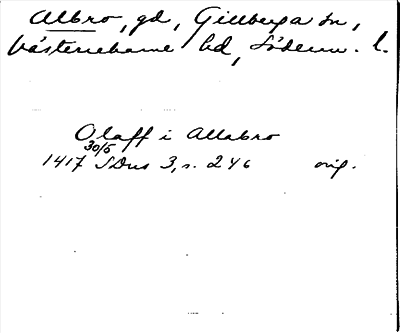 Albro, gd, Gillberga sn,
Västerrekarne hd, Söderm. l.
Olaff i Allabro
30/5
1417 SDns 3, s. 246 orig.